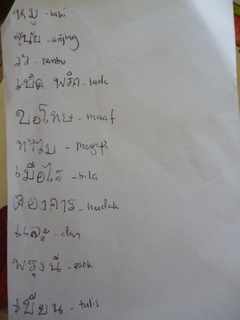 หมู - babi
สุนัข - anjing
วัว - lembu
เผ็ด พริก - lada
ขอโทษ - maaf
ทำไม - mengapa
เมื่อไร - bila
ต้องการ - hendak
และ - dan
พรุ่งนี้ - esok
เขียน - tulis